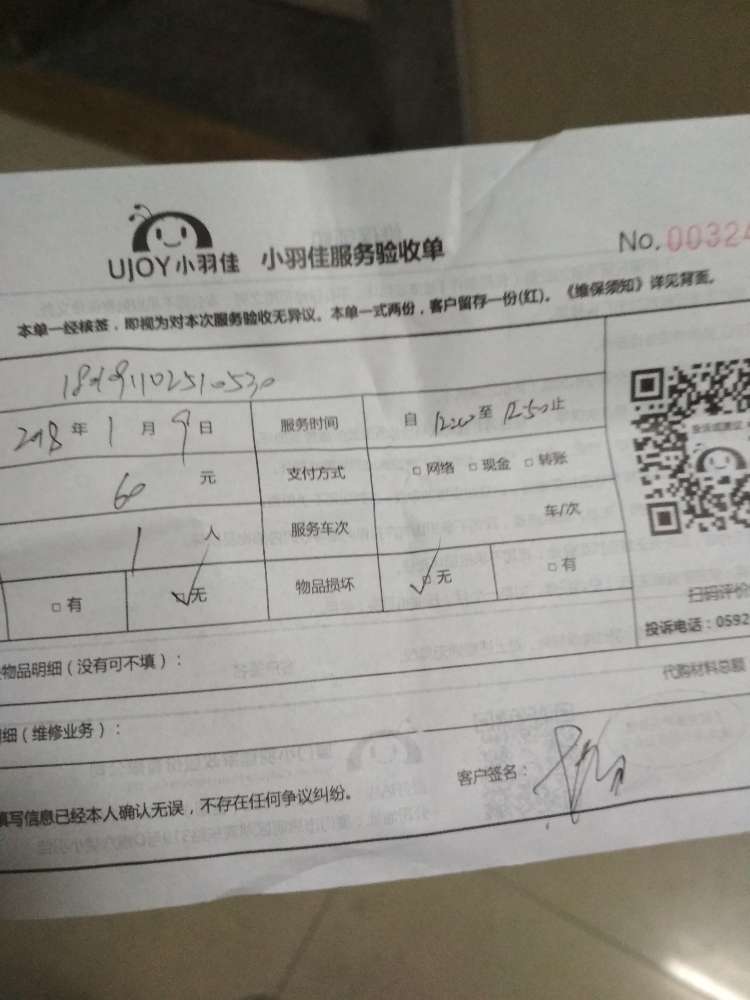 UJOY小羽佳 小羽佳服务验收单 No.00324
本单一经核签，即视为对本次服务验收无异议。本单一式两份，客户留存一份(红)。《维保须知》详见背面。
2018 年 1 月 9 日 服务时间 自 12:20 至 12:50 止
60 元 支付方式 □ 网络 □ 现金 □ 转账
1 人 服务车次 车/次
□ 有 □ 无 物品损坏 □ 无 □ 有
扫码评价
投诉电话：0592
物品明细（没有可不填）：
代购材料总额
细（维修业务）：
填写信息已经本人确认无误，不存在任何争议纠纷。
客户签名：